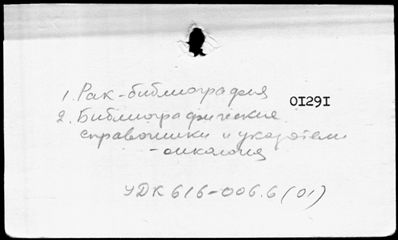 1. Рак-библиография
01291
2. Библиографические
справочники и указатели
-онкология
УДК 616-006.6 (01)